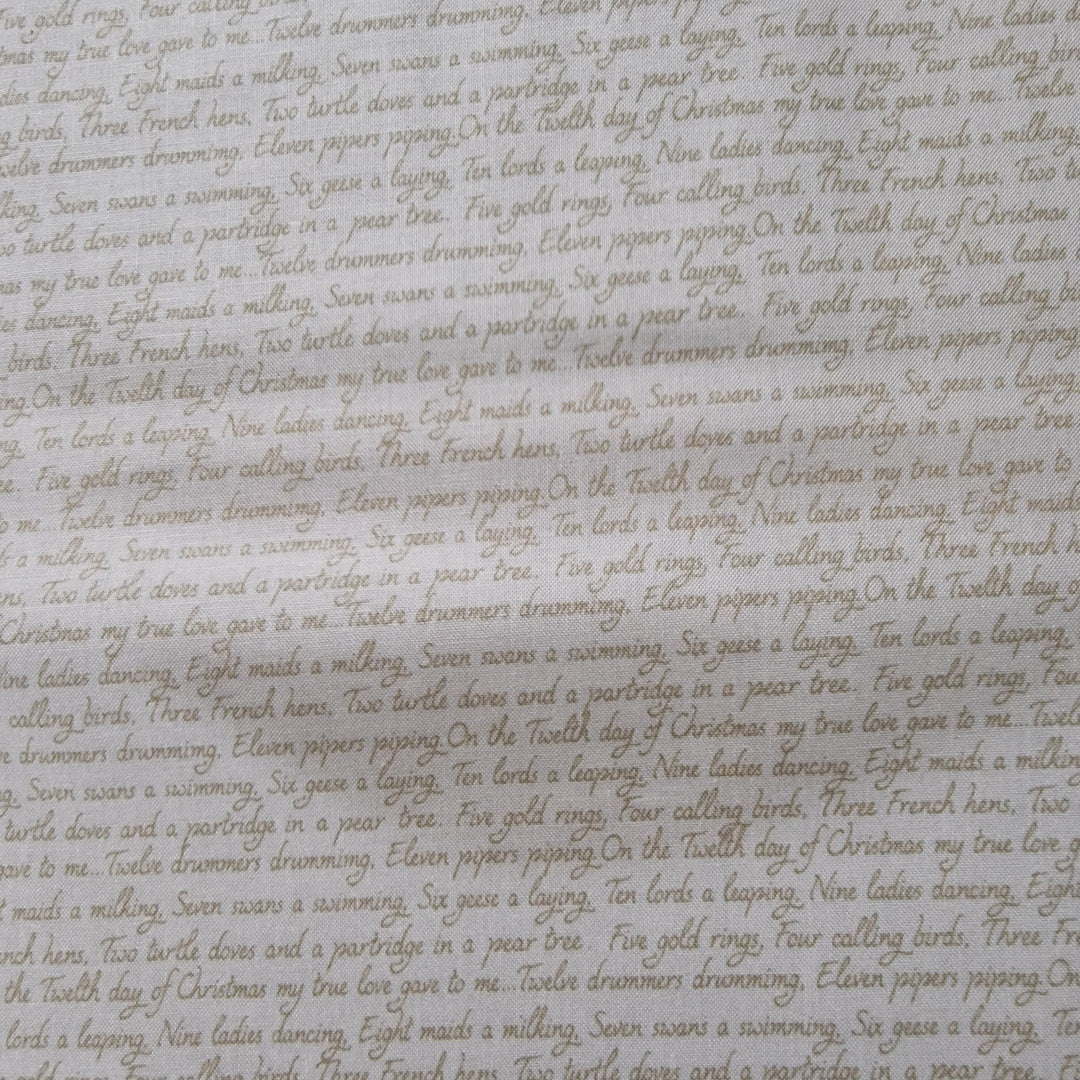 Five gold rings, Four calling birds,
my true love gave to me...Twelve drummers drummimg, Eleven pipers piping
dancing, Eight maids a milking, Seven swans a swimming, Six geese a laying, Ten lords a leaping, Nine ladies
birds, Three French hens, Two turtle doves and a partridge in a pear tree. Five gold rings, Four calling
drummers drummimg, Eleven pipers piping.On the Twelth day of Christmas my true love gave to me...Twelve
Seven swans a swimming, Six geese a laying, Ten lords a leaping, Nine ladies dancing, Eight maids a milking,
turtle doves and a partridge in a pear tree. Five gold rings, Four calling birds, Three French hens, Two
my true love gave to me...Twelve drummers drummimg, Eleven pipers piping.On the Twelth day of Christmas
dancing, Eight maids a milking, Seven swans a swimming, Six geese a laying, Ten lords a leaping, Nine ladies
birds, Three French hens, Two turtle doves and a partridge in a pear tree. Five gold rings, Four calling
On the Twelth day of Christmas my true love gave to me...Twelve drummers drummimg, Eleven pipers piping
Ten lords a leaping, Nine ladies dancing, Eight maids a milking, Seven swans a swimming, Six geese a laying,
Five gold rings, Four calling birds, Three French hens, Two turtle doves and a partridge in a pear tree
me...Twelve drummers drummimg, Eleven pipers piping.On the Twelth day of Christmas my true love gave to
a milking, Seven swans a swimming, Six geese a laying, Ten lords a leaping, Nine ladies dancing, Eight maids
Two turtle doves and a partridge in a pear tree. Five gold rings, Four calling birds, Three French
Christmas my true love gave to me...Twelve drummers drummimg, Eleven pipers piping.On the Twelth day of
ladies dancing, Eight maids a milking, Seven swans a swimming, Six geese a laying, Ten lords a leaping,
calling birds, Three French hens, Two turtle doves and a partridge in a pear tree. Five gold rings,
drummers drummimg, Eleven pipers piping.On the Twelth day of Christmas my true love gave to me...
Seven swans a swimming, Six geese a laying, Ten lords a leaping, Nine ladies dancing, Eight maids a
turtle doves and a partridge in a pear tree. Five gold rings, Four calling birds, Three French hens, Two
gave to me...Twelve drummers drummimg, Eleven pipers piping.On the Twelth day of Christmas my true love
maids a milking, Seven swans a swimming, Six geese a laying, Ten lords a leaping, Nine ladies dancing, Eight
hens, Two turtle doves and a partridge in a pear tree. Five gold rings, Four calling birds, Three
the Twelth day of Christmas my true love gave to me...Twelve drummers drummimg, Eleven pipers piping.On
lords a leaping, Nine ladies dancing, Eight maids a milking, Seven swans a swimming, Six geese a laying,
gold rings, Four calling birds, Three French hens, Two turtle doves and a partridge in a pear tree.